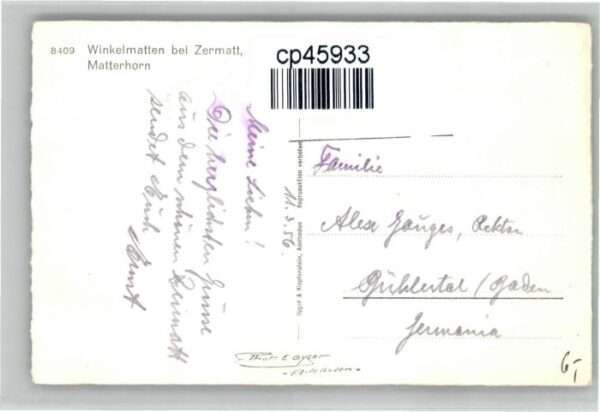 8409 Winkelmatten bei Zermatt,
Matterhorn
cp45933
Meine Lieben!
Die herzlichsten Grüsse
aus dem schönen Zermatt
sendet Euch
Ernst
11.3.56
Reproduktion verboten
Gyger & Klopfenstein, Adelboden
Familie
Alex Gauges, Rektor
Bühlertal / Baden
Germania
Adelboden
6,-